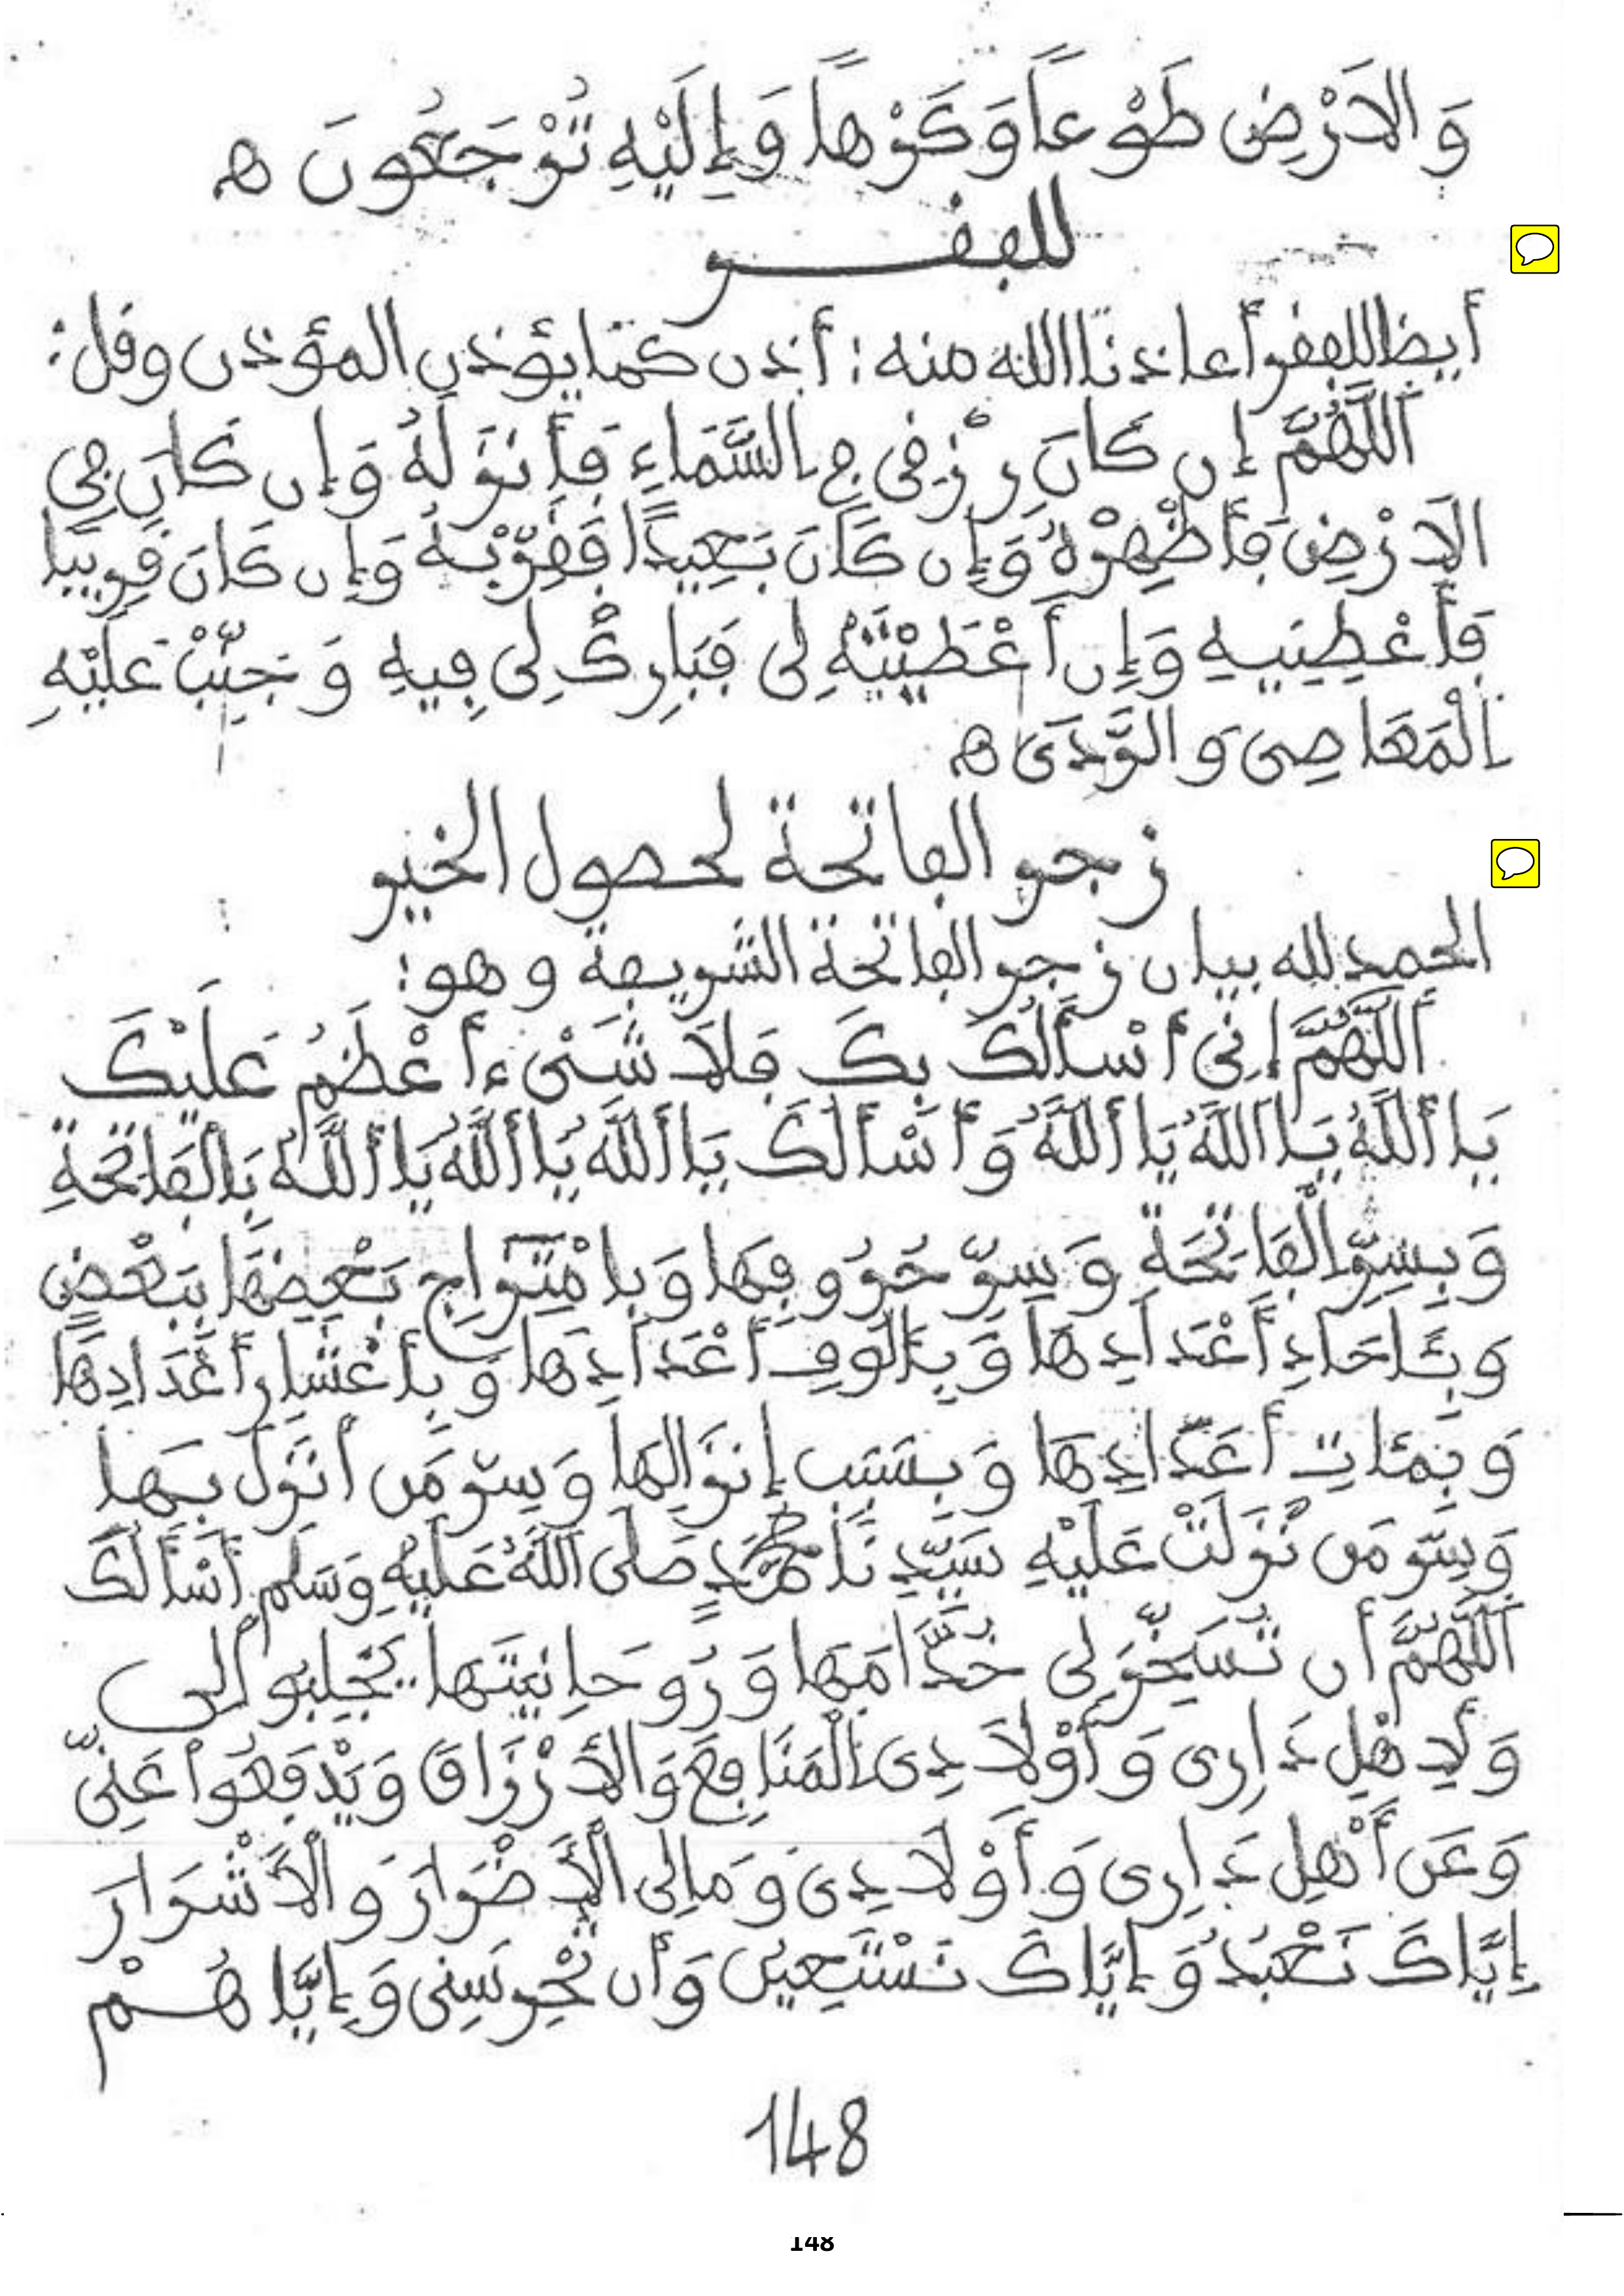 وَالاَرْضِ طَوْعاً وَكَرْهاً وَإِلَيْهِ تُرْجَعُونَ ه
للفقـــر
أيضا للفقر أعاذنا الله منه: أذن كما يؤذن المؤذن وقل:
اَللَّهُمَّ إِن كَانَ رِزْقِى فِى السَّمَاءِ فَأَنزِلْهُ وَإِن كَانَ فِى
الاَرْضِ فَأَظْهِرْهُ وَإِن كَانَ بَعِيدًا فَقَرِّبْهُ وَإِن كَانَ قَرِيبًا
فَأَعْطِنِيهِ وَإِن أَعْطَيْتَهُ لِى فَبَارِكْ لِى فِيهِ وَجَنِّبْ عَلَيْهِ
اَلْمَعَاصِى وَالرَّدَى ه
زجر الفاتحة لحصول الخير
الحمد لله بيان زجر الفاتحة الشريفة وهو:
أَللَّهُمَّ إِنِّى أَسْأَلُكَ بِكَ فَلاَ شَىْءَ أَعْظَمُ عَلَيْكَ
يَا أَللَّهُ يَا اَللَّهُ يَا أَللَّهُ وَأَسْأَلُكَ يَا أَللَّهُ يَا أَللَّهُ يَا أَللَّهُ بِالْفَاتِحَةِ
وَبِسِرِّ الْفَاتِحَةِ وَسِرِّ حُرُوفِهَا وَبِامْتِزَاجِ بَعْضِهَا بِبَعْضٍ
وَبِئَاحَادِ أَعْدَادِهَا وَبِأُلُوفِ أَعْدَادِهَا وَبِأَعْشَارِ أَعْدَادِهَا
وَبِمِئَاتِ أَعْدَادِهَا وَبِسَبَبِ إِنزَالِهَا وَسِرِّ مَن أَنزَلَ بِهَا
وَسِرِّ مَن نُزِلَتْ عَلَيْهِ سَيِّدِنَا مُحَمَّدٍ صَلَى اللَّهُ عَلَيْهِ وَسَلَم أَسْأَلُكَ
اَللَّهُمَّ أَن تُسَخِّرَ لِى خُدَّامَهَا وَرُوحَانِيَتَهَا يَجْلِبُوا لِى
وَلِأَهْلِ دَارِى وَأَوْلاَدِى اَلْمَنَافِعَ وَالأَرْزَاقَ وَيَدْفَعُوا عَنِّى
وَعَن أَهْلِ دَارِى وَأَوْلاَدِى وَمَالِى الْأَضْرَارَ وَالْأَشْرَارَ
إِيَّاكَ نَعْبُدُ وَإِيَّاكَ نَسْتَعِينُ وَأَن تَحْرِسَنِى وَإِيَّاهُمْ
148
148